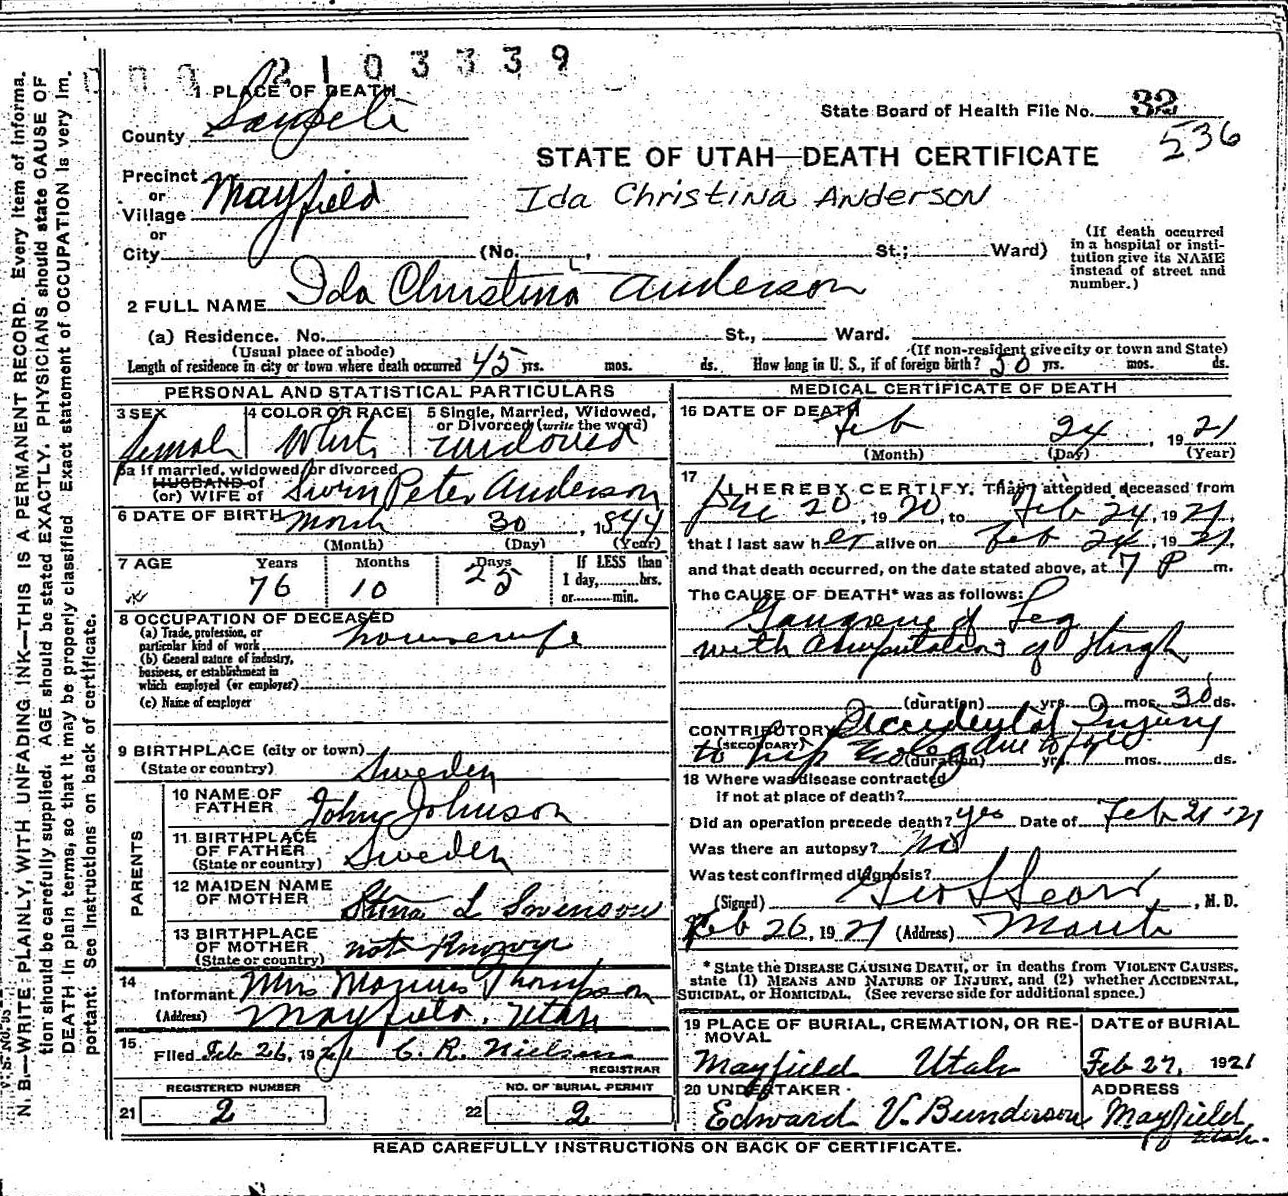 2103339
1 PLACE OF DEATH
County Sanpete
State Board of Health File No. 32
536
STATE OF UTAH—DEATH CERTIFICATE
Precinct
or
Village Mayfield
Ida Christina Anderson
or
City (No. , St.; Ward)
(If death occurred in a hospital or insti-
tution give its NAME instead of street and number.)
2 FULL NAME Ida Christina Anderson
(a) Residence. No. St., Ward.
(Usual place of abode) (If non-resident give city or town and State)
Length of residence in city or town where death occurred 45 yrs. mos. ds. How long in U. S., if of foreign birth? 50 yrs. mos. ds.
PERSONAL AND STATISTICAL PARTICULARS
3 SEX female
4 COLOR OR RACE White
5 Single, Married, Widowed, or Divorced (write the word) widowed
5a If married, widowed, or divorced
HUSBAND of
(or) WIFE of Peter Anderson
6 DATE OF BIRTH March 30, 1844
(Month) (Day) (Year)
7 AGE Years Months Days If LESS than
76 10 25 1 day, hrs.
or min.
8 OCCUPATION OF DECEASED
(a) Trade, profession, or
particular kind of work housewife
(b) General nature of industry,
business, or establishment in
which employed (or employer)
(c) Name of employer
9 BIRTHPLACE (city or town)
(State or country) Sweden
PARENTS
10 NAME OF FATHER John Johnson
11 BIRTHPLACE OF FATHER
(State or country) Sweden
12 MAIDEN NAME OF MOTHER Stina L Swenson
13 BIRTHPLACE OF MOTHER
(State or country) not Known
14 Informant Mrs Thompson
(Address) Mayfield, Utah
15 Filed Feb 26, 1921 C. R. Nielsen
REGISTRAR
REGISTERED NUMBER NO. OF BURIAL PERMIT
21 2 22 2
MEDICAL CERTIFICATE OF DEATH
16 DATE OF DEATH Feb 24, 1921
(Month) (Day) (Year)
17 I HEREBY CERTIFY, That I attended deceased from
Dec 20, 1920, to Feb 24, 1921,
that I last saw her alive on Feb 24, 1921,
and that death occurred, on the date stated above, at 7 P m.
The CAUSE OF DEATH* was as follows:
Gangrene of Leg
with Amputation of thigh
(duration) yrs. 0 mos. 30 ds.
CONTRIBUTORY Accidental Injury
(SECONDARY) to hip due to
(duration) yrs. mos. ds.
18 Where was disease contracted
if not at place of death?
Did an operation precede death? yes Date of Feb 21-21
Was there an autopsy? No
Was test confirmed diagnosis?
(Signed) Geo L Sears, M. D.
Feb 26, 1921 (Address) Manti
* State the DISEASE CAUSING DEATH, or in deaths from VIOLENT CAUSES,
state (1) MEANS AND NATURE OF INJURY, and (2) whether ACCIDENTAL,
SUICIDAL, or HOMICIDAL. (See reverse side for additional space.)
19 PLACE OF BURIAL, CREMATION, OR RE-
MOVAL
Mayfield Utah
DATE of BURIAL
Feb 27, 1921
20 UNDERTAKER
Edward V. Bunderson
ADDRESS
Mayfield Utah.
READ CAREFULLY INSTRUCTIONS ON BACK OF CERTIFICATE.
N. B.—WRITE PLAINLY, WITH UNFADING INK—THIS IS A PERMANENT RECORD. Every item of informa-
tion should be carefully supplied. AGE should be stated EXACTLY. PHYSICIANS should state CAUSE OF
DEATH in plain terms, so that it may be properly classified. Exact statement of OCCUPATION is very im-
portant. See instructions on back of certificate.